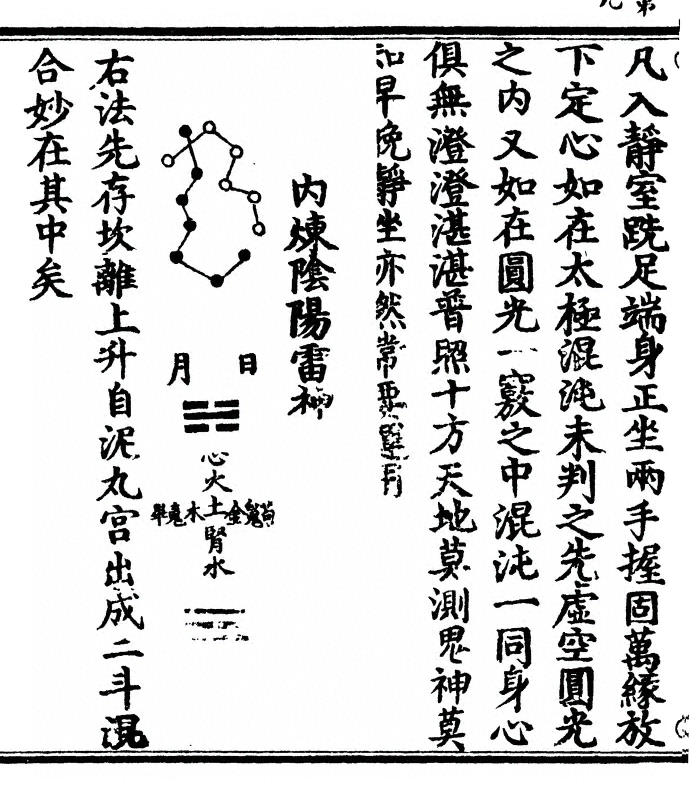 凡入靜室跣足端身正坐兩手握固萬緣放
下定心如在太極混沌未判之先虛空圓光
之内又如在圓光一竅之中混沌一同身心
俱無澄澄湛湛普照十方天地莫測鬼神莫
知早晚靜坐亦然常
内煉陰陽雷神
日
月
心火
土
木
金
腎水
右法先存坎離上升自泥丸宮出成二斗混
合妙在其中矣